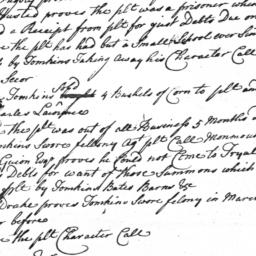 Husted proves the plt was a prisoner when
a Receipt from plt for Just Debts Due on
the plt has had but a Small School ever Sinc
by Tomkins Taking away his Character Call
Secor
Tomkins Sold 4 Bushels of Corn to plt and
Charles Lawrence
the plt was out of all Business 5 Months
Tomkins Swore fellony agt plt Call Monmou
Guion Esqr. proves he Could not Come to Tryal
Deble for want of those Summons which
by Tomkins Bates Barns &c
Drake proves Tomkins Swore felony in Marc
or before
the plt Character Call